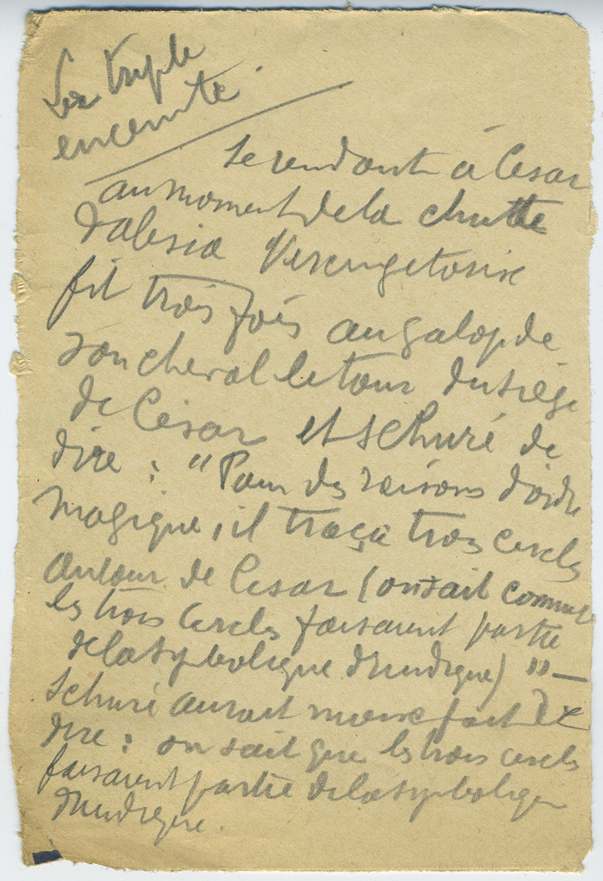 La triple
enceinte.
Se rendant à César
au moment de la chutte
d'alesia Vercingetorix
fit trois fois au galop de
son cheval le tour du siège
de César et Schuré de
dire : "Pour des raisons d'ordre
magique, il traça trois cercles
autour de Cesar (on sait comme
les trois cercles faisaient partie
de la symbolique druidique)" —
Schuré aurait mieux fait de
dire : on sait que les trois cercles
faisaient partie de la symbolique
druidique.